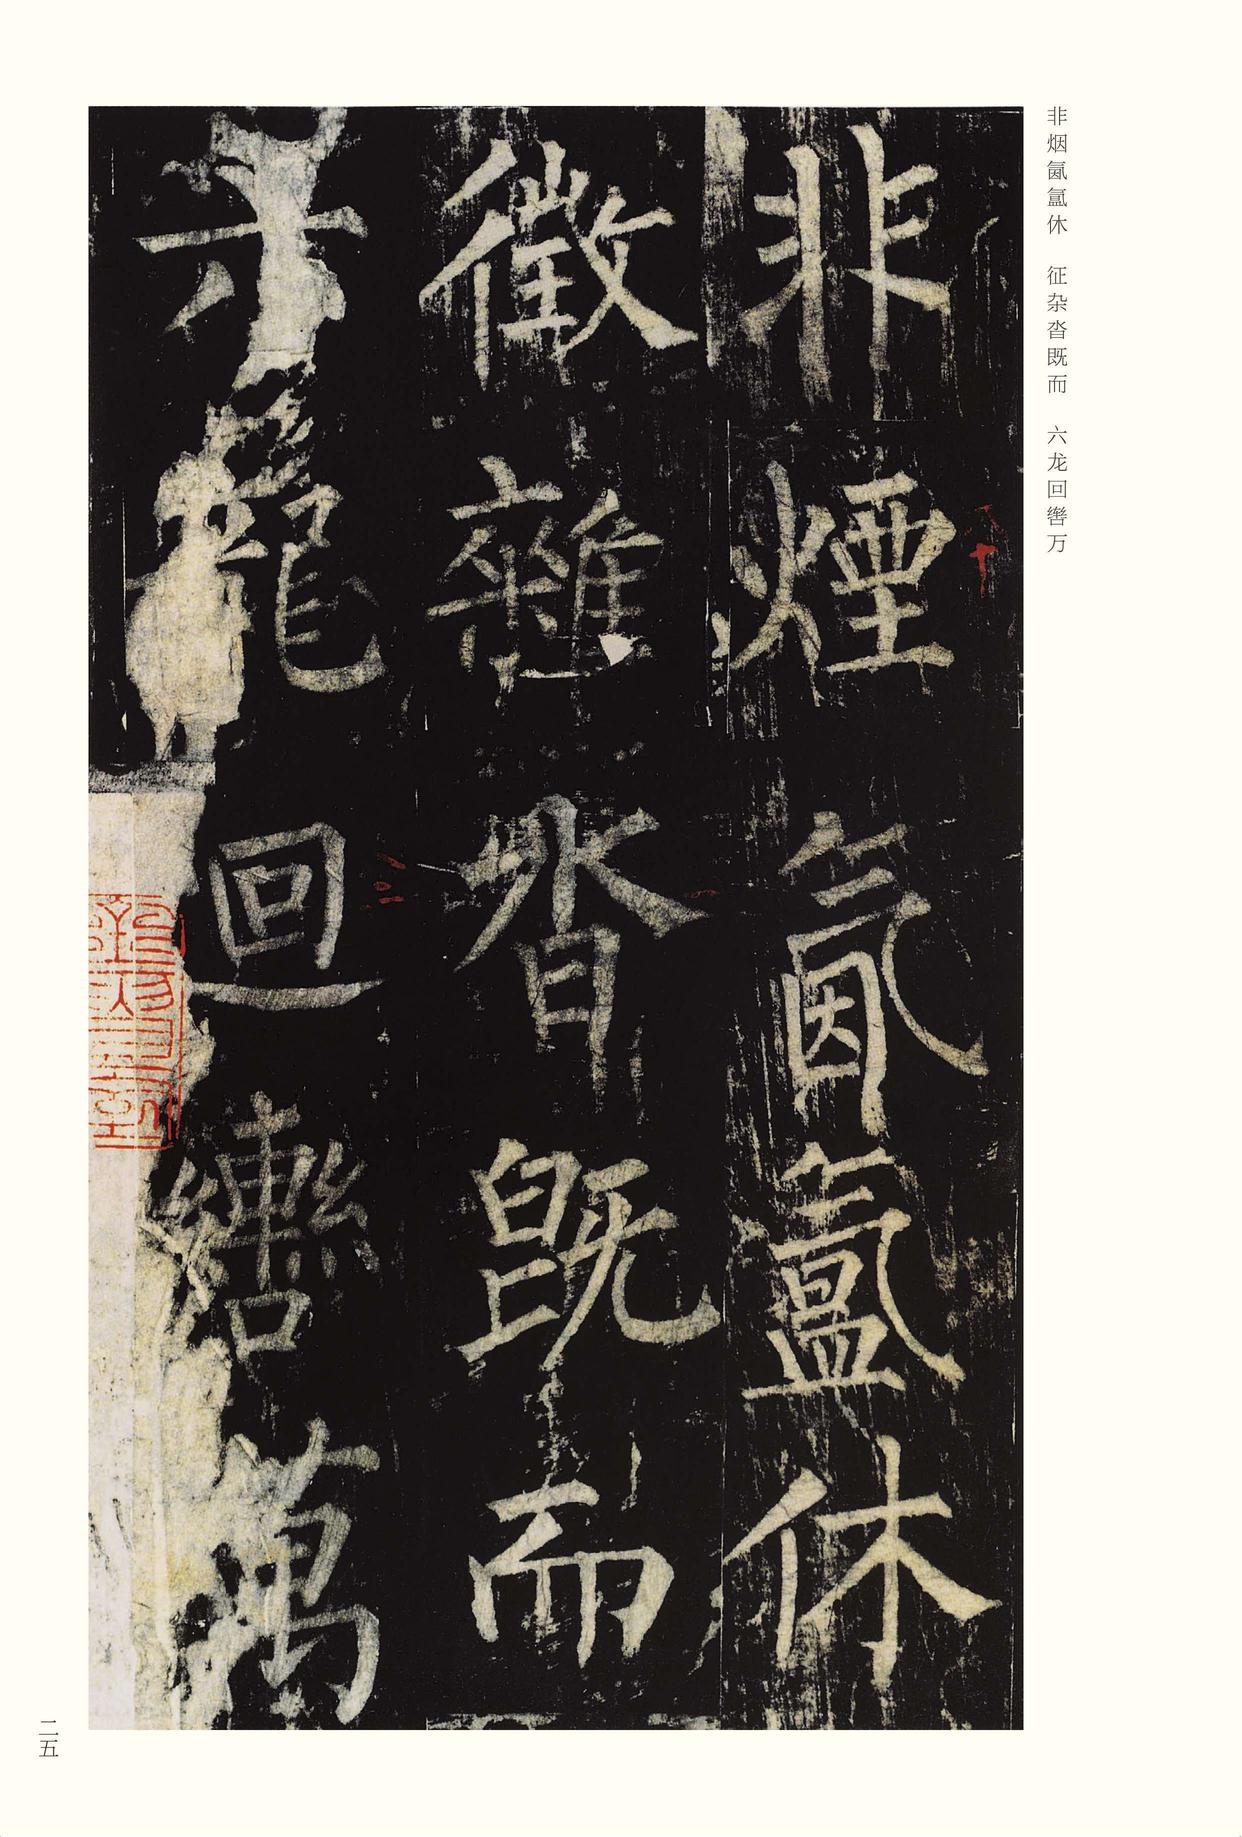 非烟氤氲休　征杂沓既而　六龙回辔万
非煙氤氲休
徵雜沓既而
六龍迴轡萬
二五